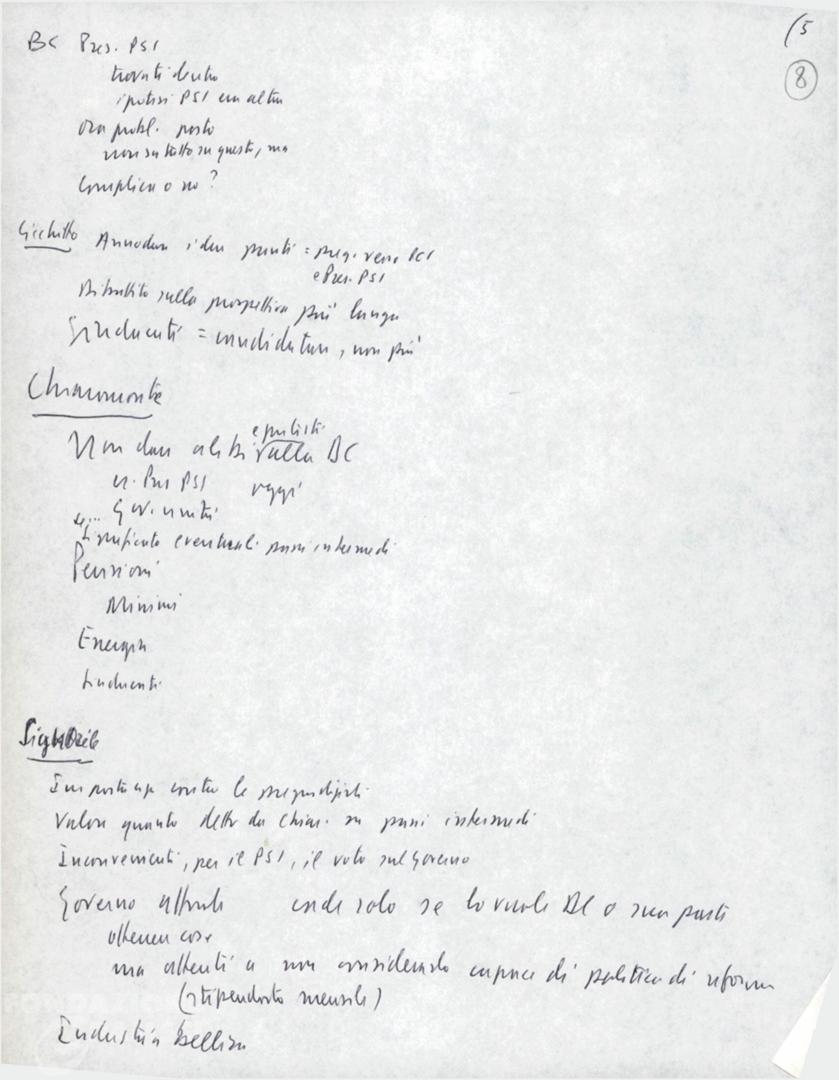 (5
8
Pres. PSI
trovati dentro
ipotesi PSI con altri
Ora probl. posto
non su tutto su questo, ma
Complica o no?
Cicchitto Annodare i due punti = preg. verso PCI
e Pres. PSI
Dibattito sulla prospettiva più lunga
Sindacati = candidature, non più
Chiaromonte
Non dare alibi
e pulisti
Pres PSI oggi
Gov. unità
Significato eventuali passi intermedi
Pensioni
Minimi
Energia
Sindacati
Signorile
Importanza contro le pregiudiziali
Valore quanto detto da Chiar. su passi intermedi
Inconvenienti, per il PSI, il voto sul Governo
Governo attuale cade solo se lo vuole DC o sua parte
ottenere cose
ma attenti a non considerarlo capace di politica di riforme
(stipendiato mensile)
Industria bellica